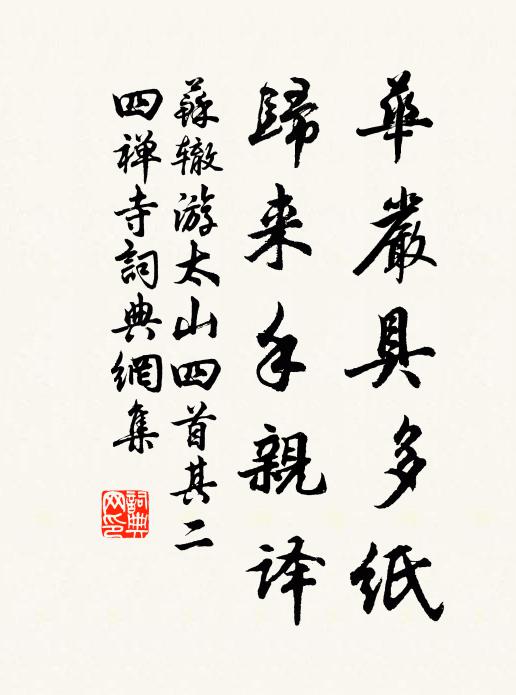 華嚴具多紙
歸来手親译
蘇辙游太山四首其二
四禅寺詞典網集
詞典
网印